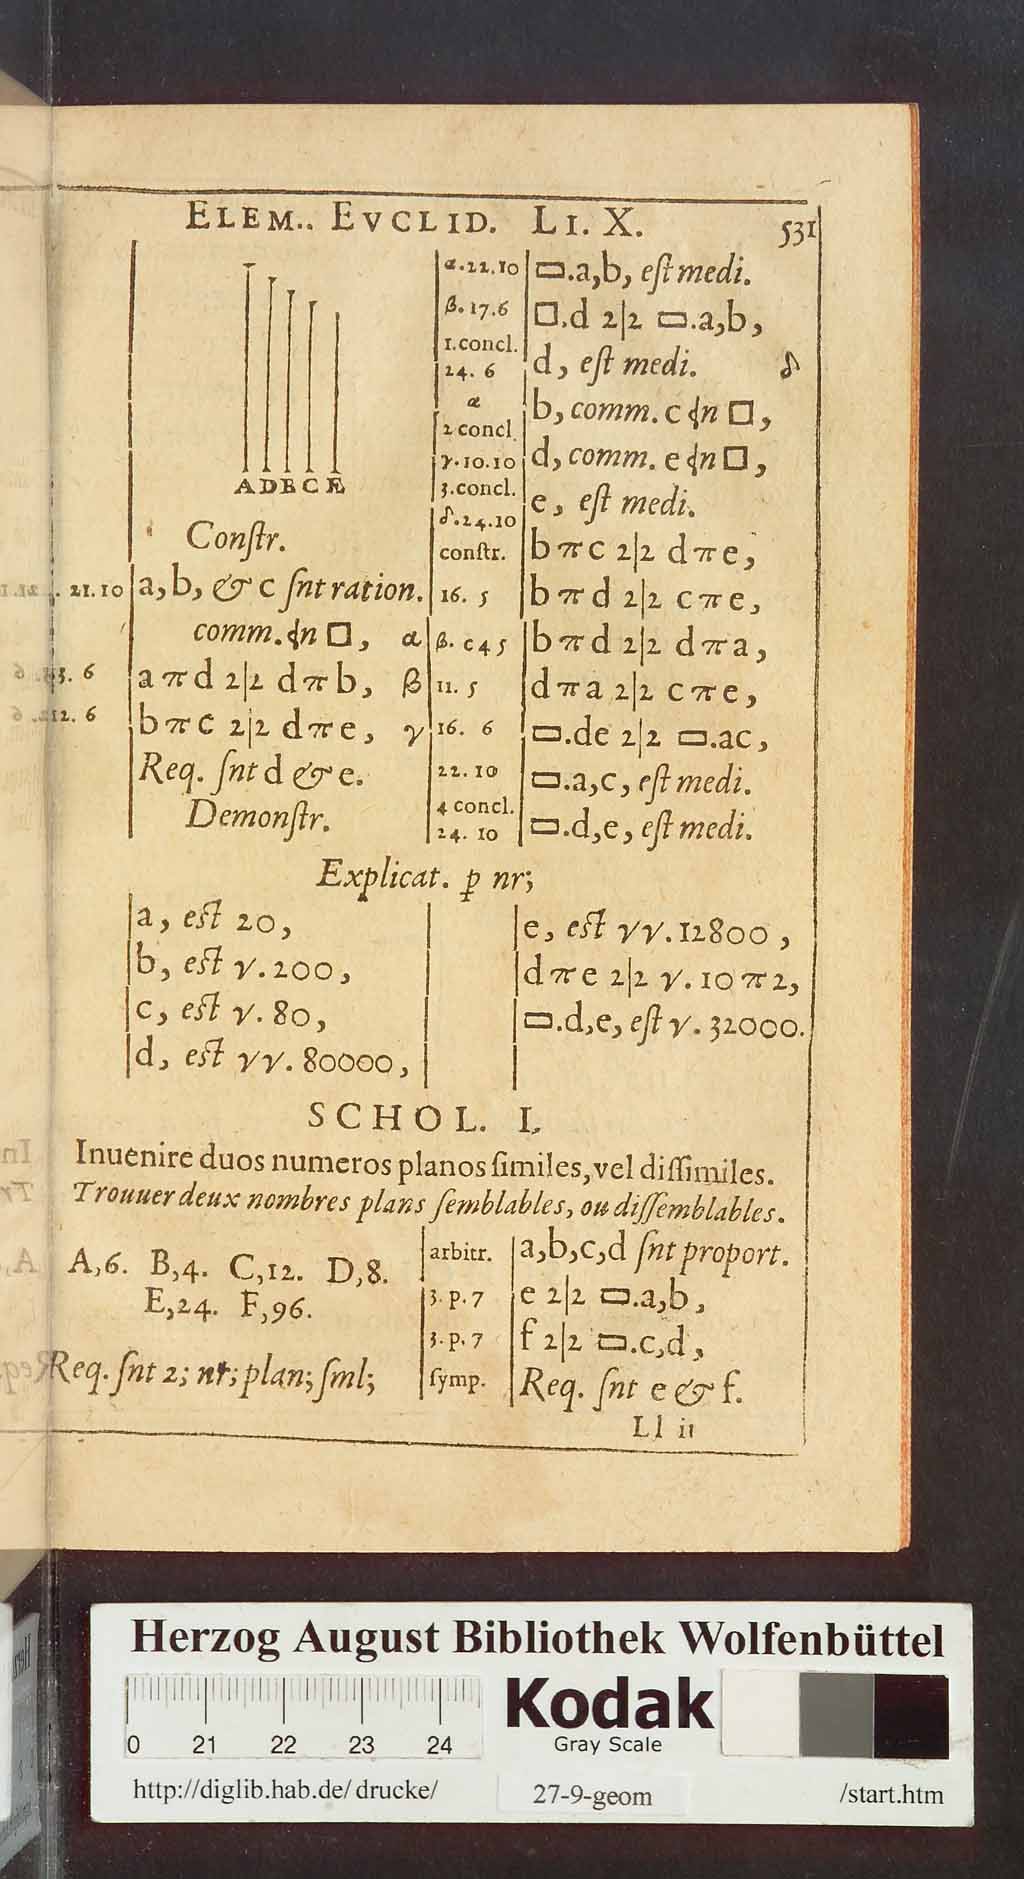 ELEM.. EVCLID. LI. X. 531
ADBCE
Constr.
21.10 a,b, & c snt ration.
comm. ɖn □, α
13. 6 a π d 2|2 d π b, β
12. 6 b π c 2|2 d π e, γ
Req. snt d & e.
Demonstr.
α.22.10 ▭.a,b, est medi.
β.17.6 □.d 2|2 ▭.a,b,
1.concl.
24. 6 d, est medi. δ
α b, comm. c ɖn □,
2 concl.
γ.10.10 d, comm. e ɖn □,
3.concl.
δ.24.10 e, est medi.
constr. b π c 2|2 d π e,
16. 5 b π d 2|2 c π e,
β. c 4 5 b π d 2|2 d π a,
11. 5 d π a 2|2 c π e,
16. 6 ▭.de 2|2 ▭.ac,
22. 10 ▭.a,c, est medi.
4 concl.
24. 10 ▭.d,e, est medi.
Explicat. ꝑ nr;
a, est 20,
b, est √.200,
c, est √. 80,
d, est √√. 80000,
e, est √√.12800,
d π e 2|2 √. 10 π 2,
▭.d,e, est √. 32000.
SCHOL. I.
Inuenire duos numeros planos similes, vel dissimiles.
Trouuer deux nombres plans semblables, ou dissemblables.
A,6. B,4. C,12. D,8.
E,24. F,96.
Req. snt 2; nr; plan; sml;
arbitr. a,b,c,d snt proport.
3. p. 7 e 2|2 ▭.a,b,
3. p. 7 f 2|2 ▭.c,d,
symp. Req. snt e & f.
Ll ii
Herzog August Bibliothek Wolfenbüttel
0 21 22 23 24
Kodak
Gray Scale
http://diglib.hab.de/drucke/ 27-9-geom /start.htm